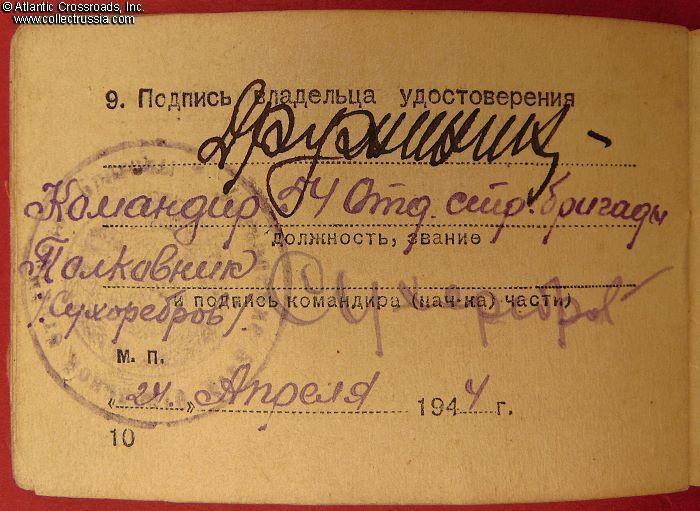 © Atlantic Crossroads, Inc.
www.collectrussia.com
9. Подпись владельца удостоверения
Дружинин
Командир 54 Отд. стр. бригады
должность, звание
Полковник
и подпись командира (нач-ка) части)
/Сухоребров/
Сухоребров
М. П.
«24» Апреля 1944 г.
10